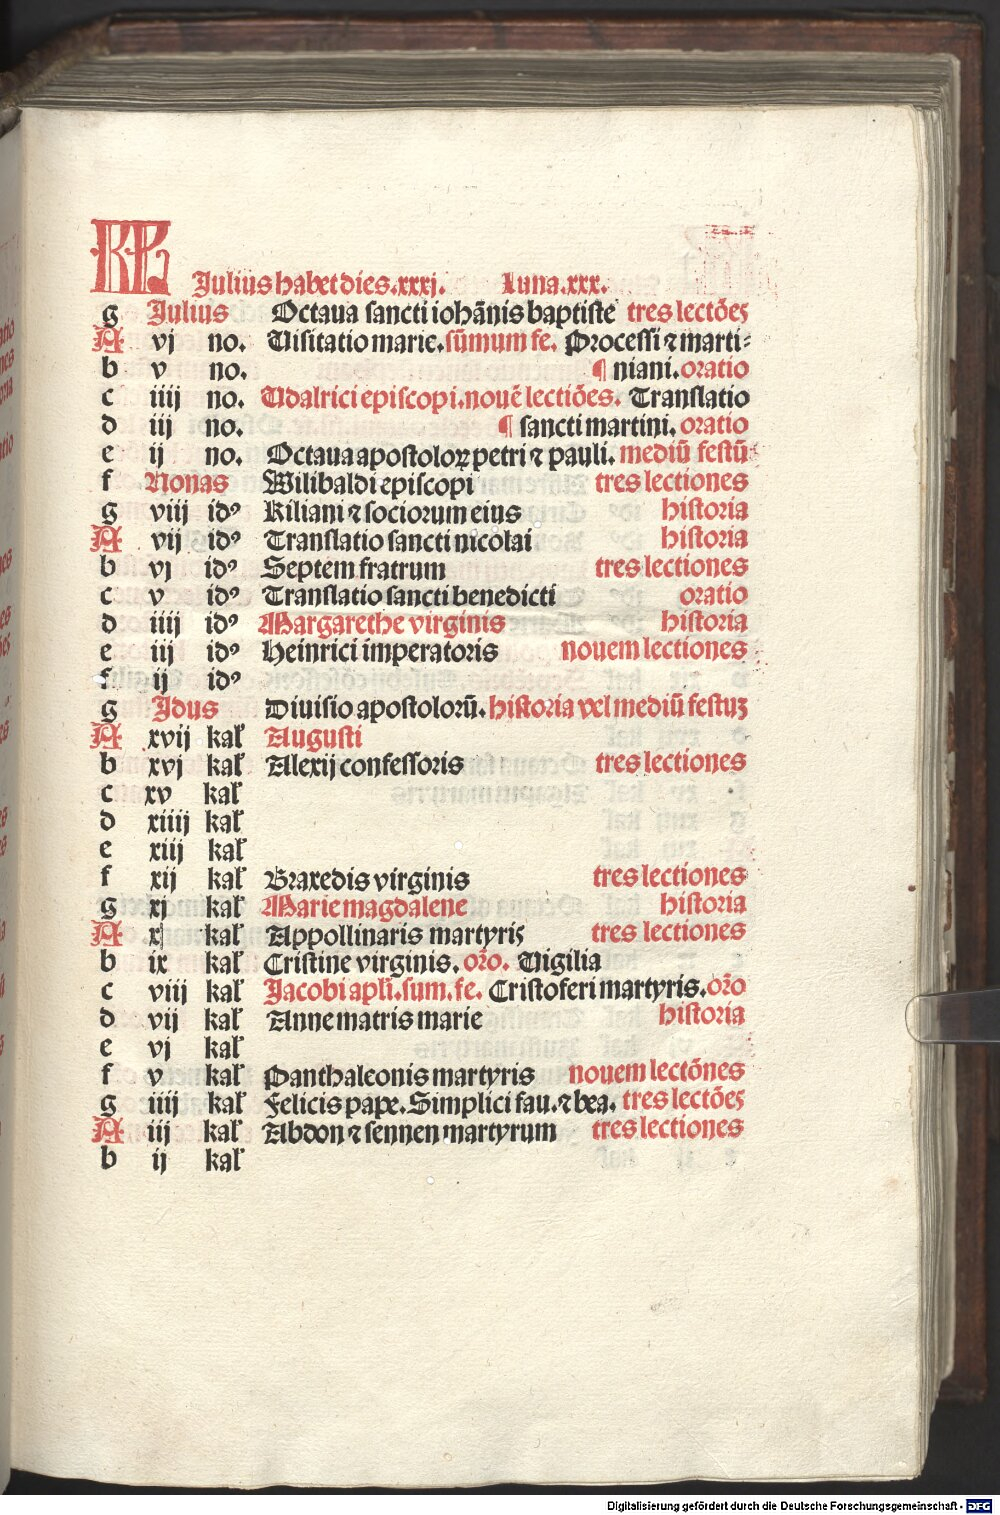 KL Julius habet dies.xxxj. Luna.xxx.
g Julius Octaua sancti iohãnis baptiste tres lectões
A vj no. Uisitatio marie.sũmum fe. Processi ⁊ marti⸗
b v no. ¶ niani.oratio
c iiij no. Udalrici episcopi.nouẽ lectiões. Translatio
d iij no. ¶ sancti martini. oratio
e ij no. Octaua apostoloꝝ petri ⁊ pauli. mediũ festũ
f Nonas Wilibaldi episcopi tres lectiones
g viij idꝰ Kiliani ⁊ sociorum eius historia
A vij idꝰ Translatio sancti nicolai historia
b vj idꝰ Septem fratrum tres lectiones
c v idꝰ Translatio sancti benedicti oratio
d iiij idꝰ Margarethe virginis historia
e iij idꝰ Heinrici imperatoris nouem lectiones
f ij idꝰ
g Jdus Diuisio apostolorũ. historia vel mediũ festuʒ
A xvij kal' Augusti
b xvj kal' Alexij confessoris tres lectiones
c xv kal'
d xiiij kal'
e xiij kal'
f xij kal' Braxedis virginis tres lectiones
g xj kal' Marie magdalene historia
A x kal' Appollinaris martyris tres lectiones
b ix kal' Cristine virginis. orõ. Uigilia
c viij kal' Jacobi apli.sum.fe. Cristoferi martyris.orõ
d vij kal' Anne matris marie historia
e vj kal'
f v kal' Panthaleonis martyris nouem lectõnes
g iiij kal' Felicis pape.Simplici fau.⁊ bea. tres lectões
A iij kal' Abdon ⁊ sennen martyrum tres lectiones
b ij kal'
Digitalisierung gefördert durch die Deutsche Forschungsgemeinschaft - DFG